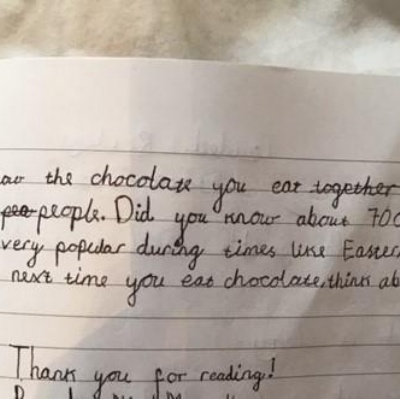 the chocolate you eat together
people. Did you know about 700
very popular during times like Easter
next time you eat chocolate, think ab
Thank you for reading!